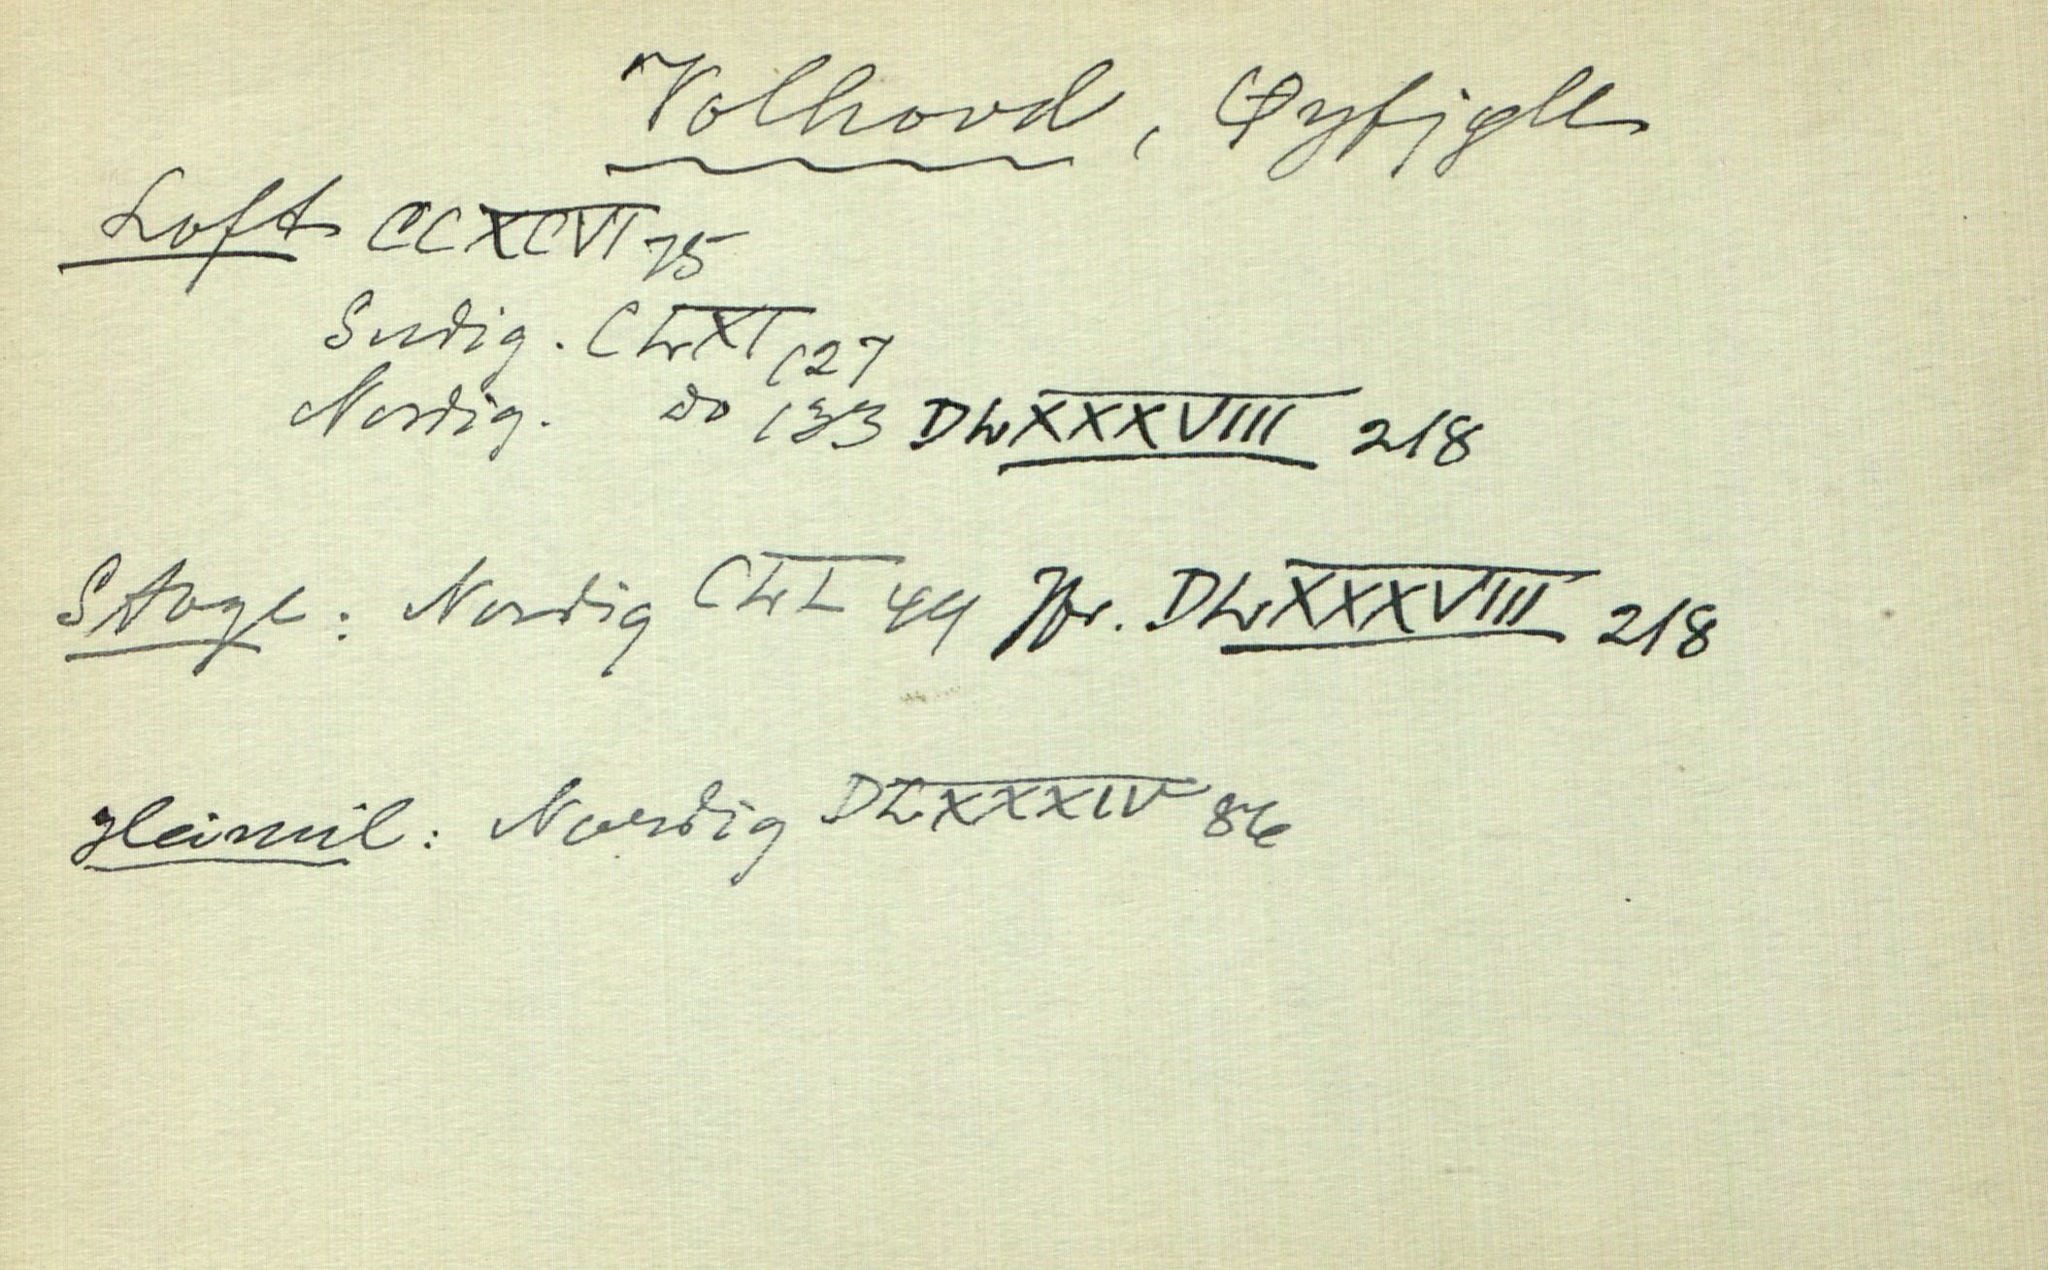 Volhovd, Øyfjell
Loft CCXCVI 75
Sudig. CLXI 127
Nordig. do 133 DLXXXVIII 218
Stoge: Nordig CLI 44 Jfr. DLXXXVIII 218
Heimil: Nordig DLXXXIV 86